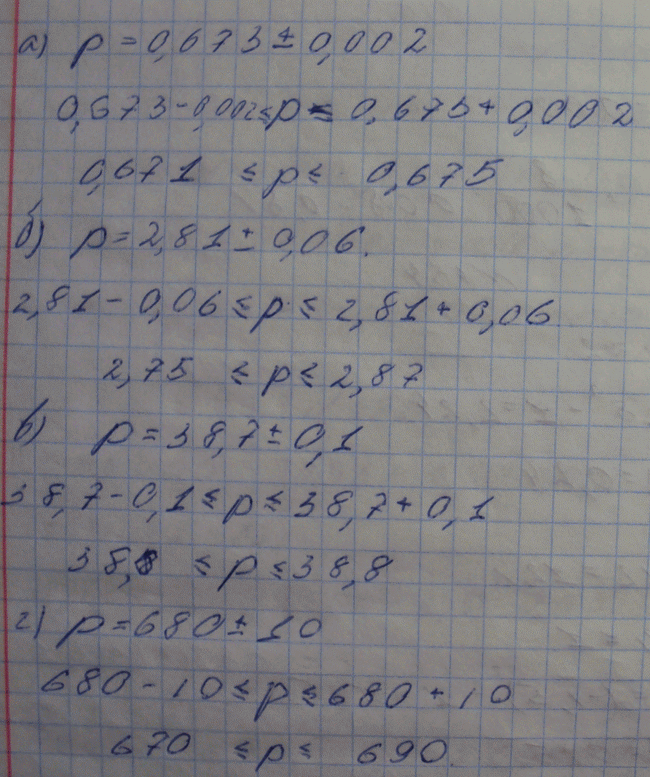 а) p = 0,673 ± 0,002
0,673 - 0,002 ≤ p ≤ 0,673 + 0,002
0,671 ≤ p ≤ 0,675
б) p = 2,81 ± 0,06.
2,81 - 0,06 ≤ p ≤ 2,81 + 0,06
2,75 ≤ p ≤ 2,87
в) p = 38,7 ± 0,1
38,7 - 0,1 ≤ p ≤ 38,7 + 0,1
≤ p ≤ 38,8
г) p = 680 ± 10
680 - 10 ≤ p ≤ 680 + 10
670 ≤ p ≤ 690.